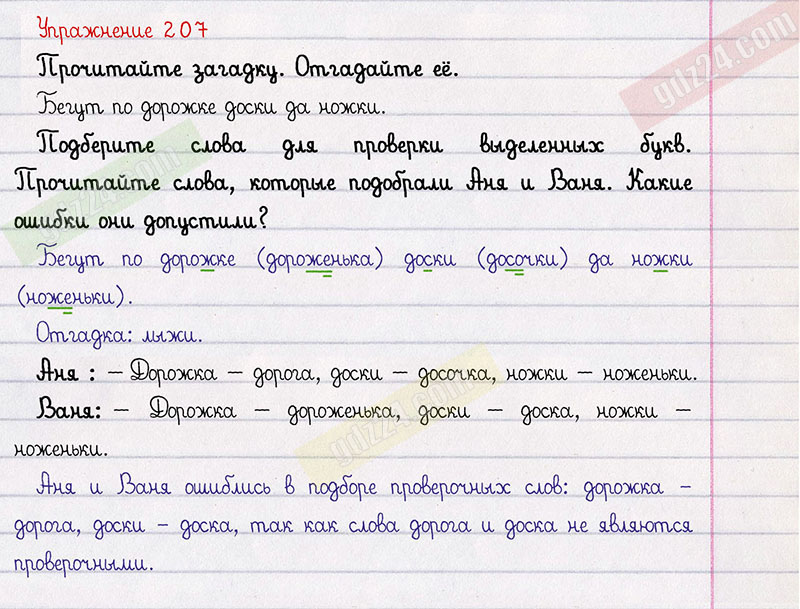 Упражнение 207
Прочитайте загадку. Отгадайте её.
Бегут по дорожке доски да ножки.
Подберите слова для проверки выделенных букв.
Прочитайте слова, которые подобрали Аня и Ваня. Какие
ошибки они допустили?
Бегут по дорожке (дороженька) доски (досочки) да ножки
(ноженьки).
Отгадка: лыжи.
Аня : – Дорожка – дорога, доски – досочка, ножки – ноженьки.
Ваня: – Дорожка – дороженька, доски – доска, ножки –
ноженьки.
Аня и Ваня ошиблись в подборе проверочных слов: дорожка –
дорога, доски – доска, так как слова дорога и доска не являются
проверочными.
gdz24.com
gdz24.com
gdz24.com